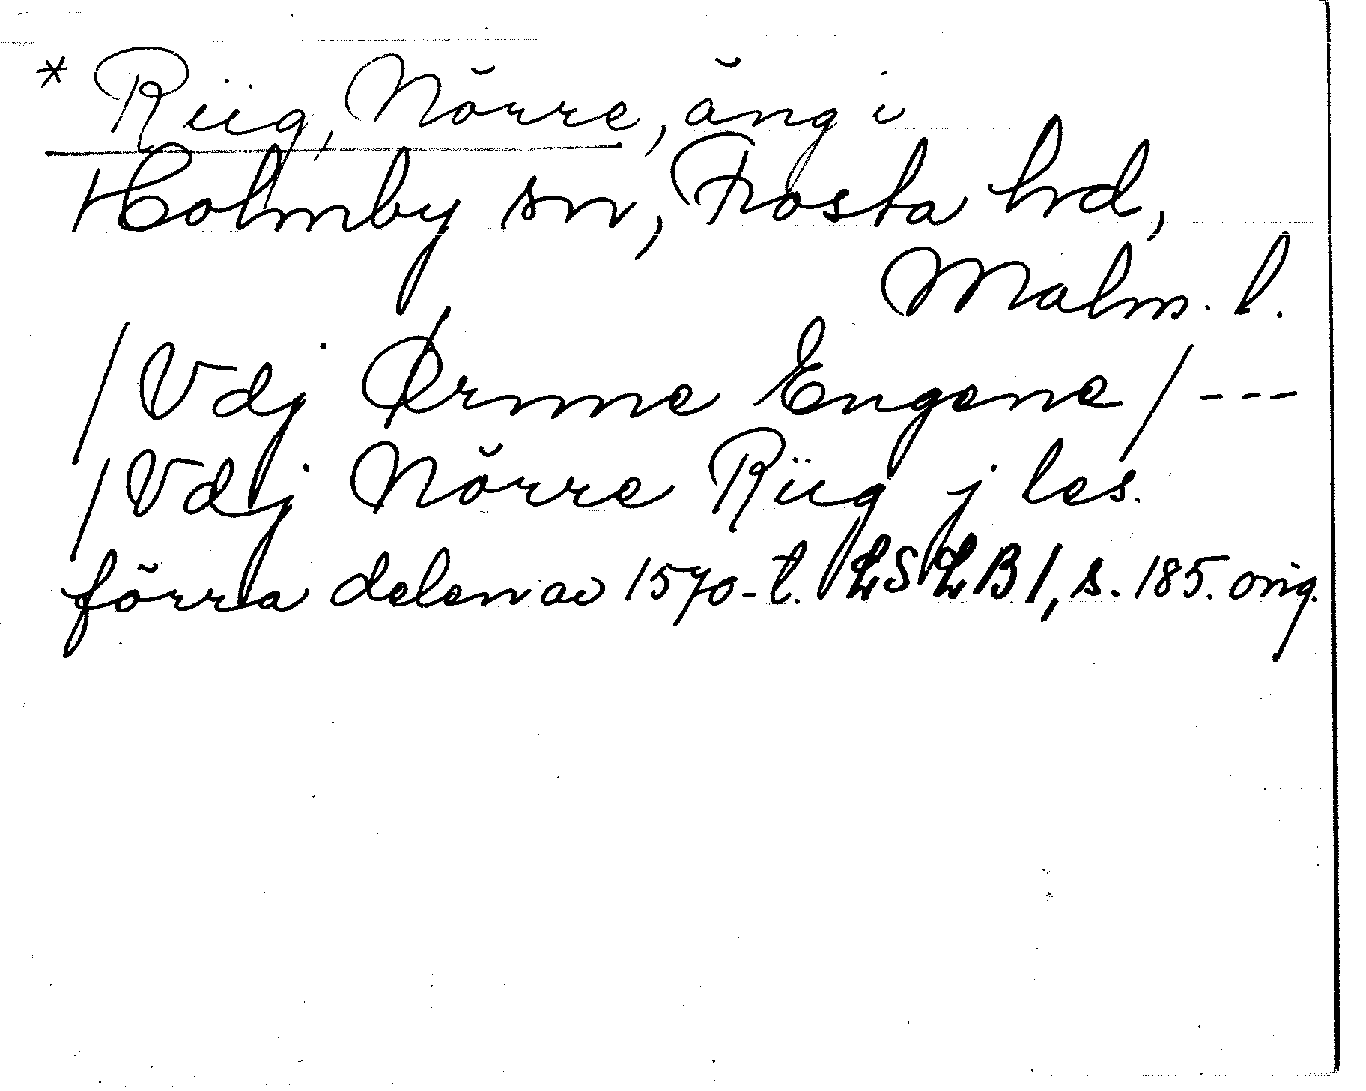 * Riig, Nörre, äng i
Holmby sn, Frosta hd,
Malm. l.
/Vdj Ørnne Engene/ ---
/Vdj Nörre Riig j les.
förra delen av 1570-t. LSLB1, s. 185. orig.